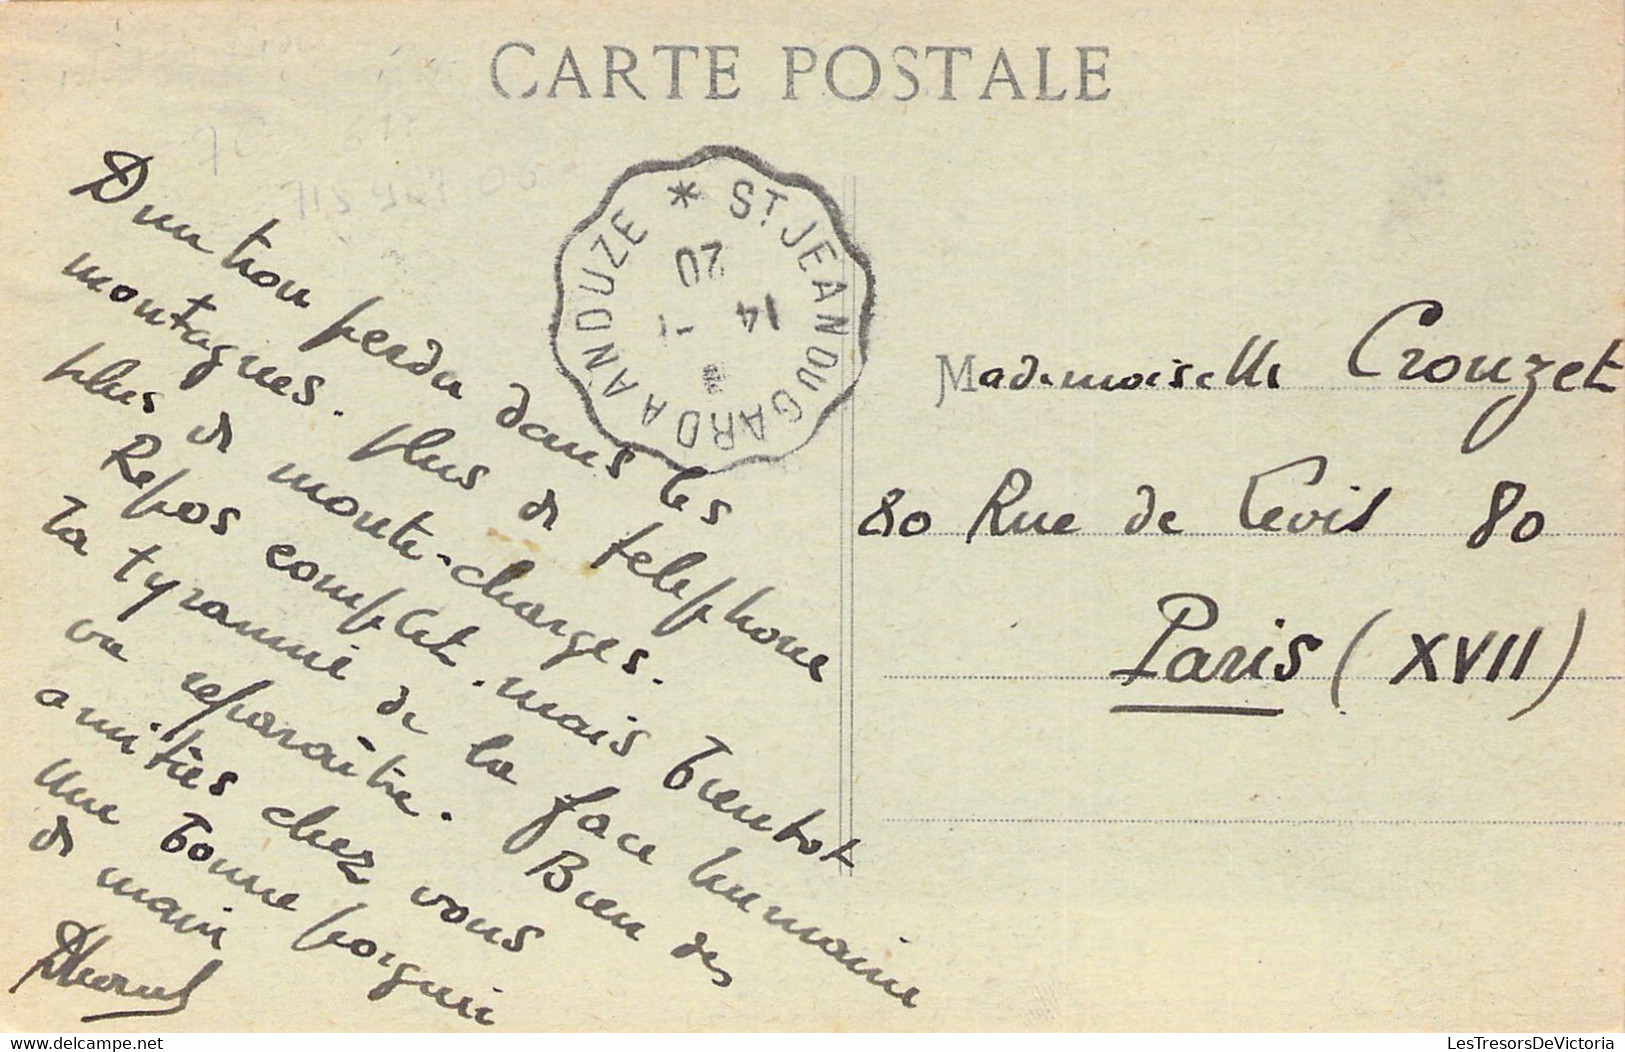 CARTE POSTALE
D'un trou perdu dans les
montagnes. Plus de telephone
plus de monte-charges.
Repos complet. mais bientot
la tyrannie de la face humaine
va reparaître. Bien des
amitiés chez vous
une bonne poignée
de main
ST JEAN DU GARD A ANDUZE *
20
14 - 1
Mademoiselle Crouzet
80 Rue de Levis 80
Paris (XVII)
delcampe.net
LesTresorsDeVictoria